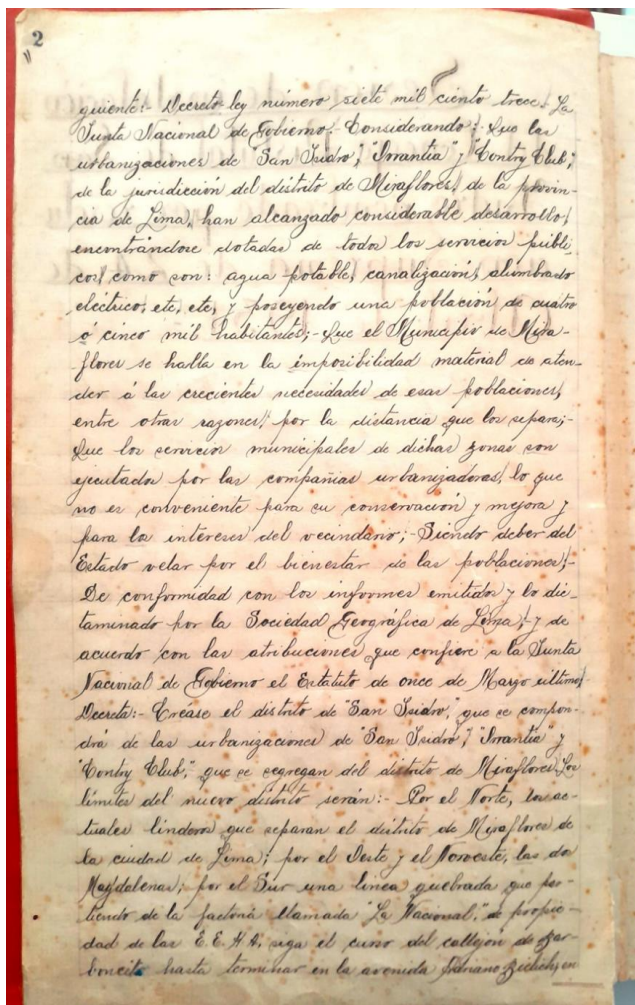 2
guiente:- Decreto-ley número siete mil ciento trece. La
Junta Nacional de Gobierno. Considerando:- Que las
urbanizaciones de "San Isidro", "Orrantia" y "Contry Club",
de la jurisdicción del distrito de Miraflores, de la provin-
cia de Lima, han alcanzado considerable desarrollo,
encontrándose dotadas de todos los servicios públi-
cos, como son: agua potable, canalización, alumbrado
electrico, etc, etc, y poseyendo una población de cuatro
ó cinco mil habitantes;- Que el Municipio de Mira-
flores se halla en la imposibilidad material de aten-
der á las crecientes necesidades de esas poblaciones,
entre otras razones, por la distancia que los separa;-
Que los servicios municipales de dichas zonas son
ejecutados por las compañías urbanizadoras, lo que
no es conveniente para su conservación y mejora y
para los intereses del vecindario;- Siendo deber del
Estado velar por el bienestar de las poblaciones;-
De conformidad con los informes emitidos y lo dic-
taminado por la Sociedad Geográfica de Lima;- y de
acuerdo con las atribuciones que confiere a la Junta
Nacional de Gobierno el Estatuto de once de Marzo último;-
Decreta:- Créase el distrito de "San Isidro", que se compon-
drá de las urbanizaciones de "San Isidro", "Orrantia" y
"Contry Club", que se segregan del distrito de Miraflores. Los
límites del nuevo distrito serán:- Por el Norte, los ac-
tuales linderos que separan el distrito de Miraflores de
la ciudad de Lima; por el Oeste y el Noroeste, las dos
Magdalenas; por el Sur una linea quebrada que par-
tiendo de la factoría llamada "La Nacional", de propie-
dad de las E.E. A.A. siga el curso del callejón de Bar-
boncito hasta terminar en la avenida Adriano Bielich, en